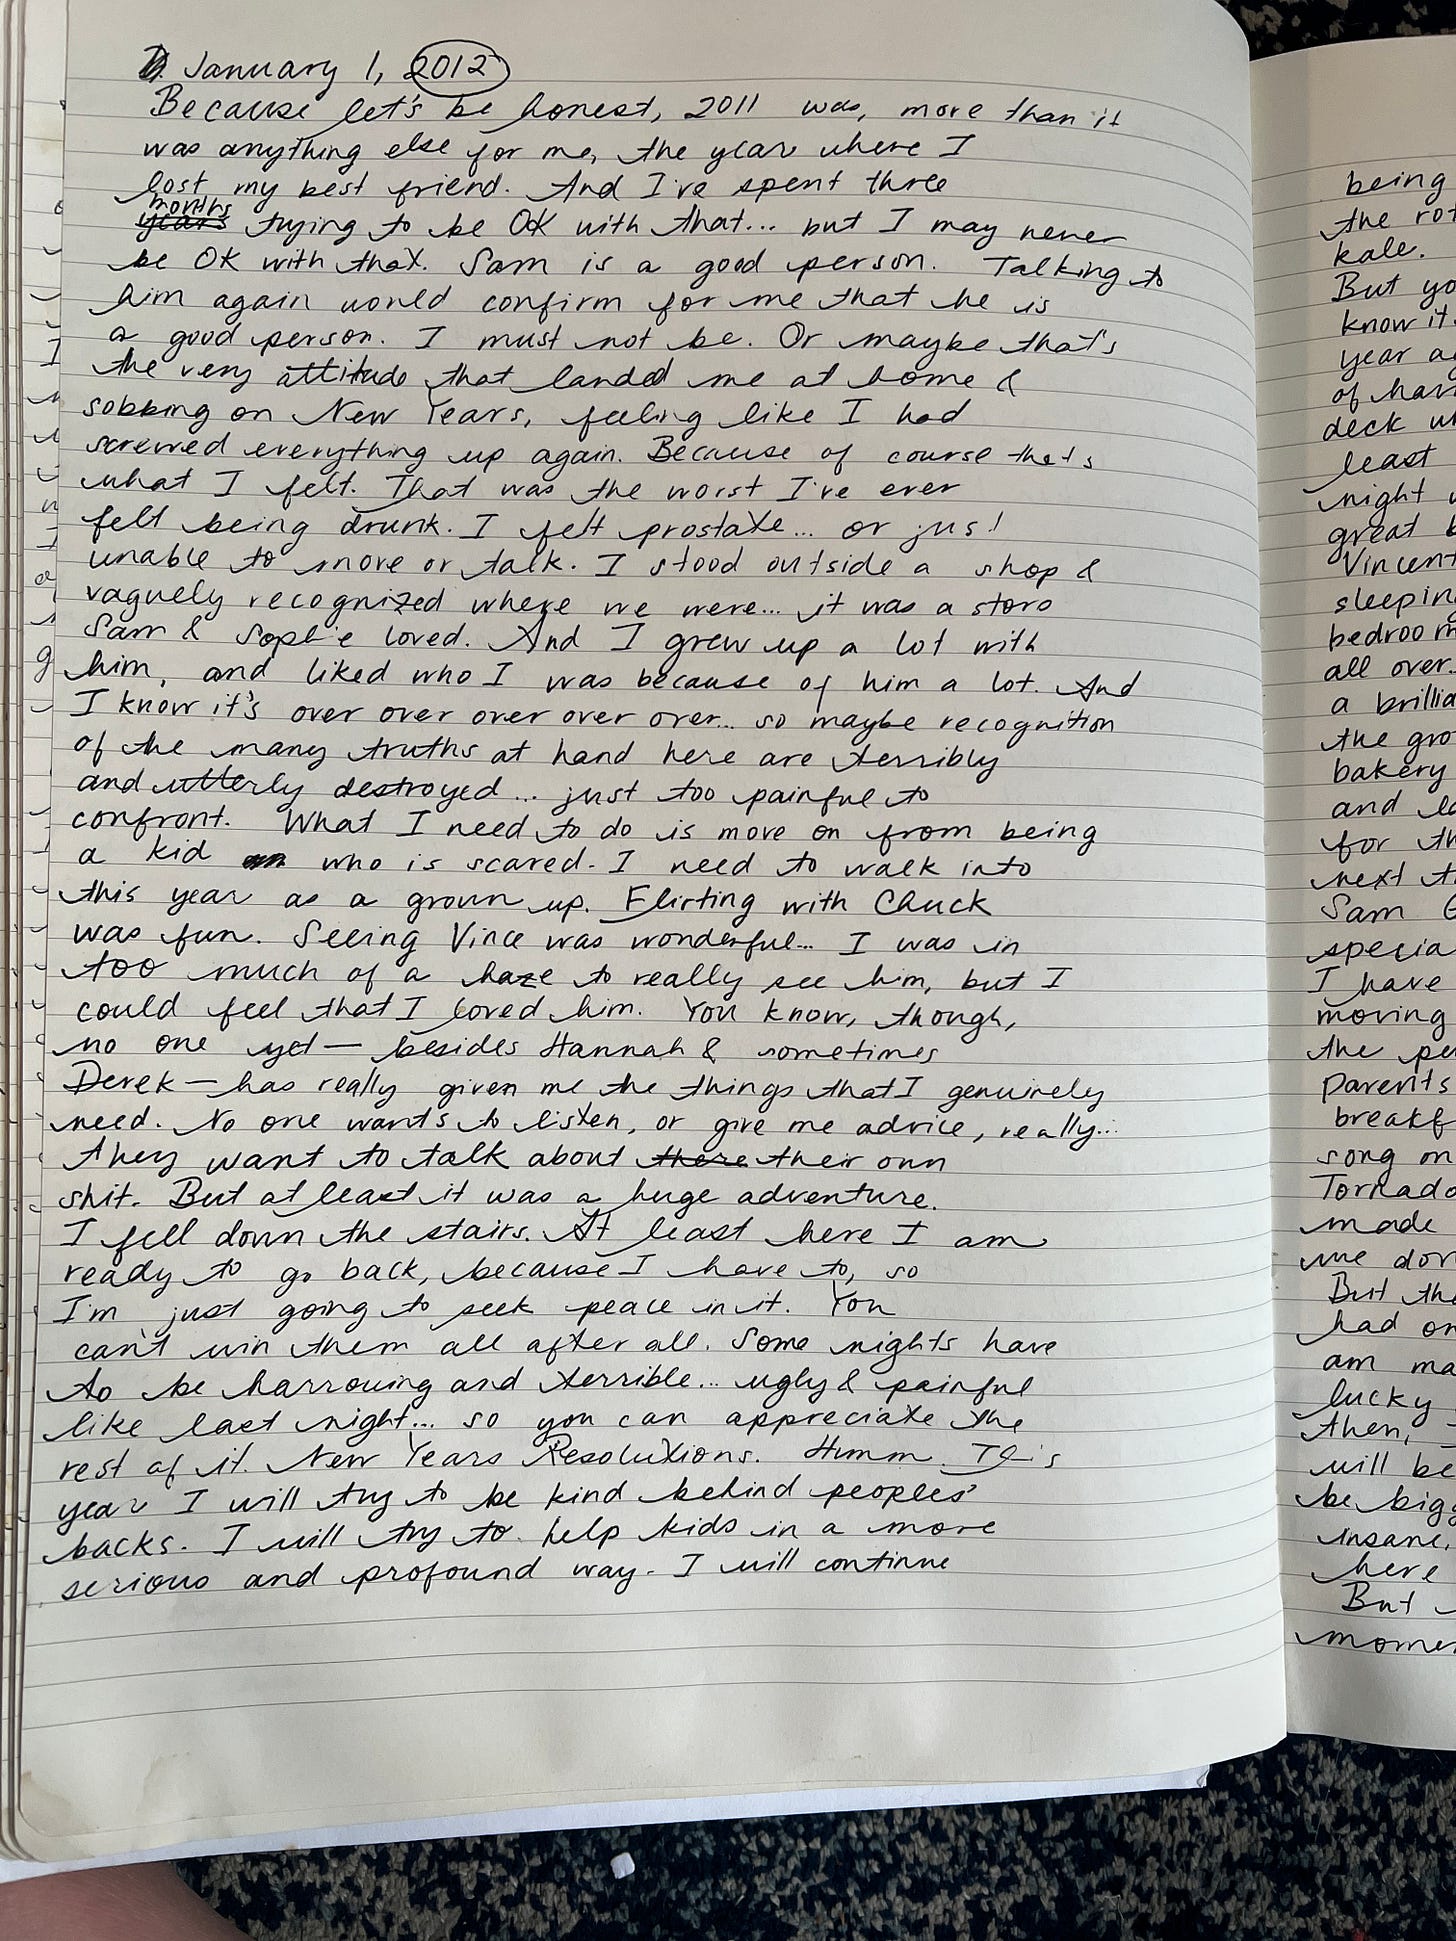 January 1, 2012
Because let's be honest, 2011 was, more than it
was anything else for me, the year where I
lost my best friend. And I've spent three
months
years trying to be OK with that... but I may never
be OK with that. Sam is a good person. Talking to
him again would confirm for me that he is
a good person. I must not be. Or maybe that's
the very attitude that landed me at home &
sobbing on New Years, feeling like I had
screwed everything up again. Because of course that's
what I felt. That was the worst I've ever
felt being drunk. I felt prostate... or just
unable to move or talk. I stood outside a shop &
vaguely recognized where we were... it was a store
Sam & Sophie loved. And I grew up a lot with
him, and liked who I was because of him a lot. And
I know it's over over over over over... so maybe recognition
of the many truths at hand here are terribly
and utterly destroyed... just too painful to
confront. What I need to do is move on from being
a kid who is scared. I need to walk into
this year as a grown up. Flirting with Chuck
was fun. Seeing Vince was wonderful... I was in
too much of a haze to really see him, but I
could feel that I loved him. You know, though,
no one yet — besides Hannah & sometimes
Derek — has really given me the things that I genuinely
need. No one wants to listen, or give me advice, really...
they want to talk about there their own
shit. But at least it was a huge adventure.
I fell down the stairs. At least here I am
ready to go back, because I have to, so
I'm just going to seek peace in it. You
can't win them all after all. Some nights have
to be harrowing and terrible... ugly & painful
like last night... so you can appreciate the
rest of it. New Years Resolutions. Hmm. This
year I will try to be kind behind peoples'
backs. I will try to help kids in a more
serious and profound way. I will continue
being
the
kale.
But
know it
year
of
deck
least
night
great
Vincent
sleeping
bedroom
all over...
a
the
bakery
and
for
next
Sam
I have
moving
the
parents
song on
made
But
had
am
lucky
then,
will be
be
insane,
here
But